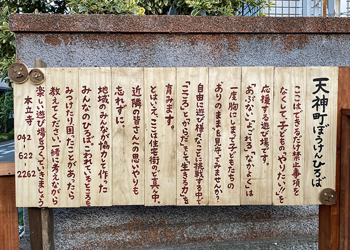 天神町ぼうけんひろば
ここはできるだけ禁止事項を
なくして、子どもの「やりたい?」を
応援する遊び場です。
「あぶない」「ダメ」「なかよく」は
一度胸にしまって子どもたちの
「ありのまま」を見守ってみませんか?
自由に遊び様々なことに挑戦する中で
「こころ」と「からだ」そして生きる力を
育みます。
とはいえ、ここは住宅街のど真ん中。
近隣の皆さんへの思いやりも
忘れずに。
地域のみんなが協力して作った
みんなのひろば。こわれているところを
みつけたり困ったことがあったら
教えてください。一緒に考えながら
楽しい遊び場をつくっていきましょう
本立寺 042-622-2262